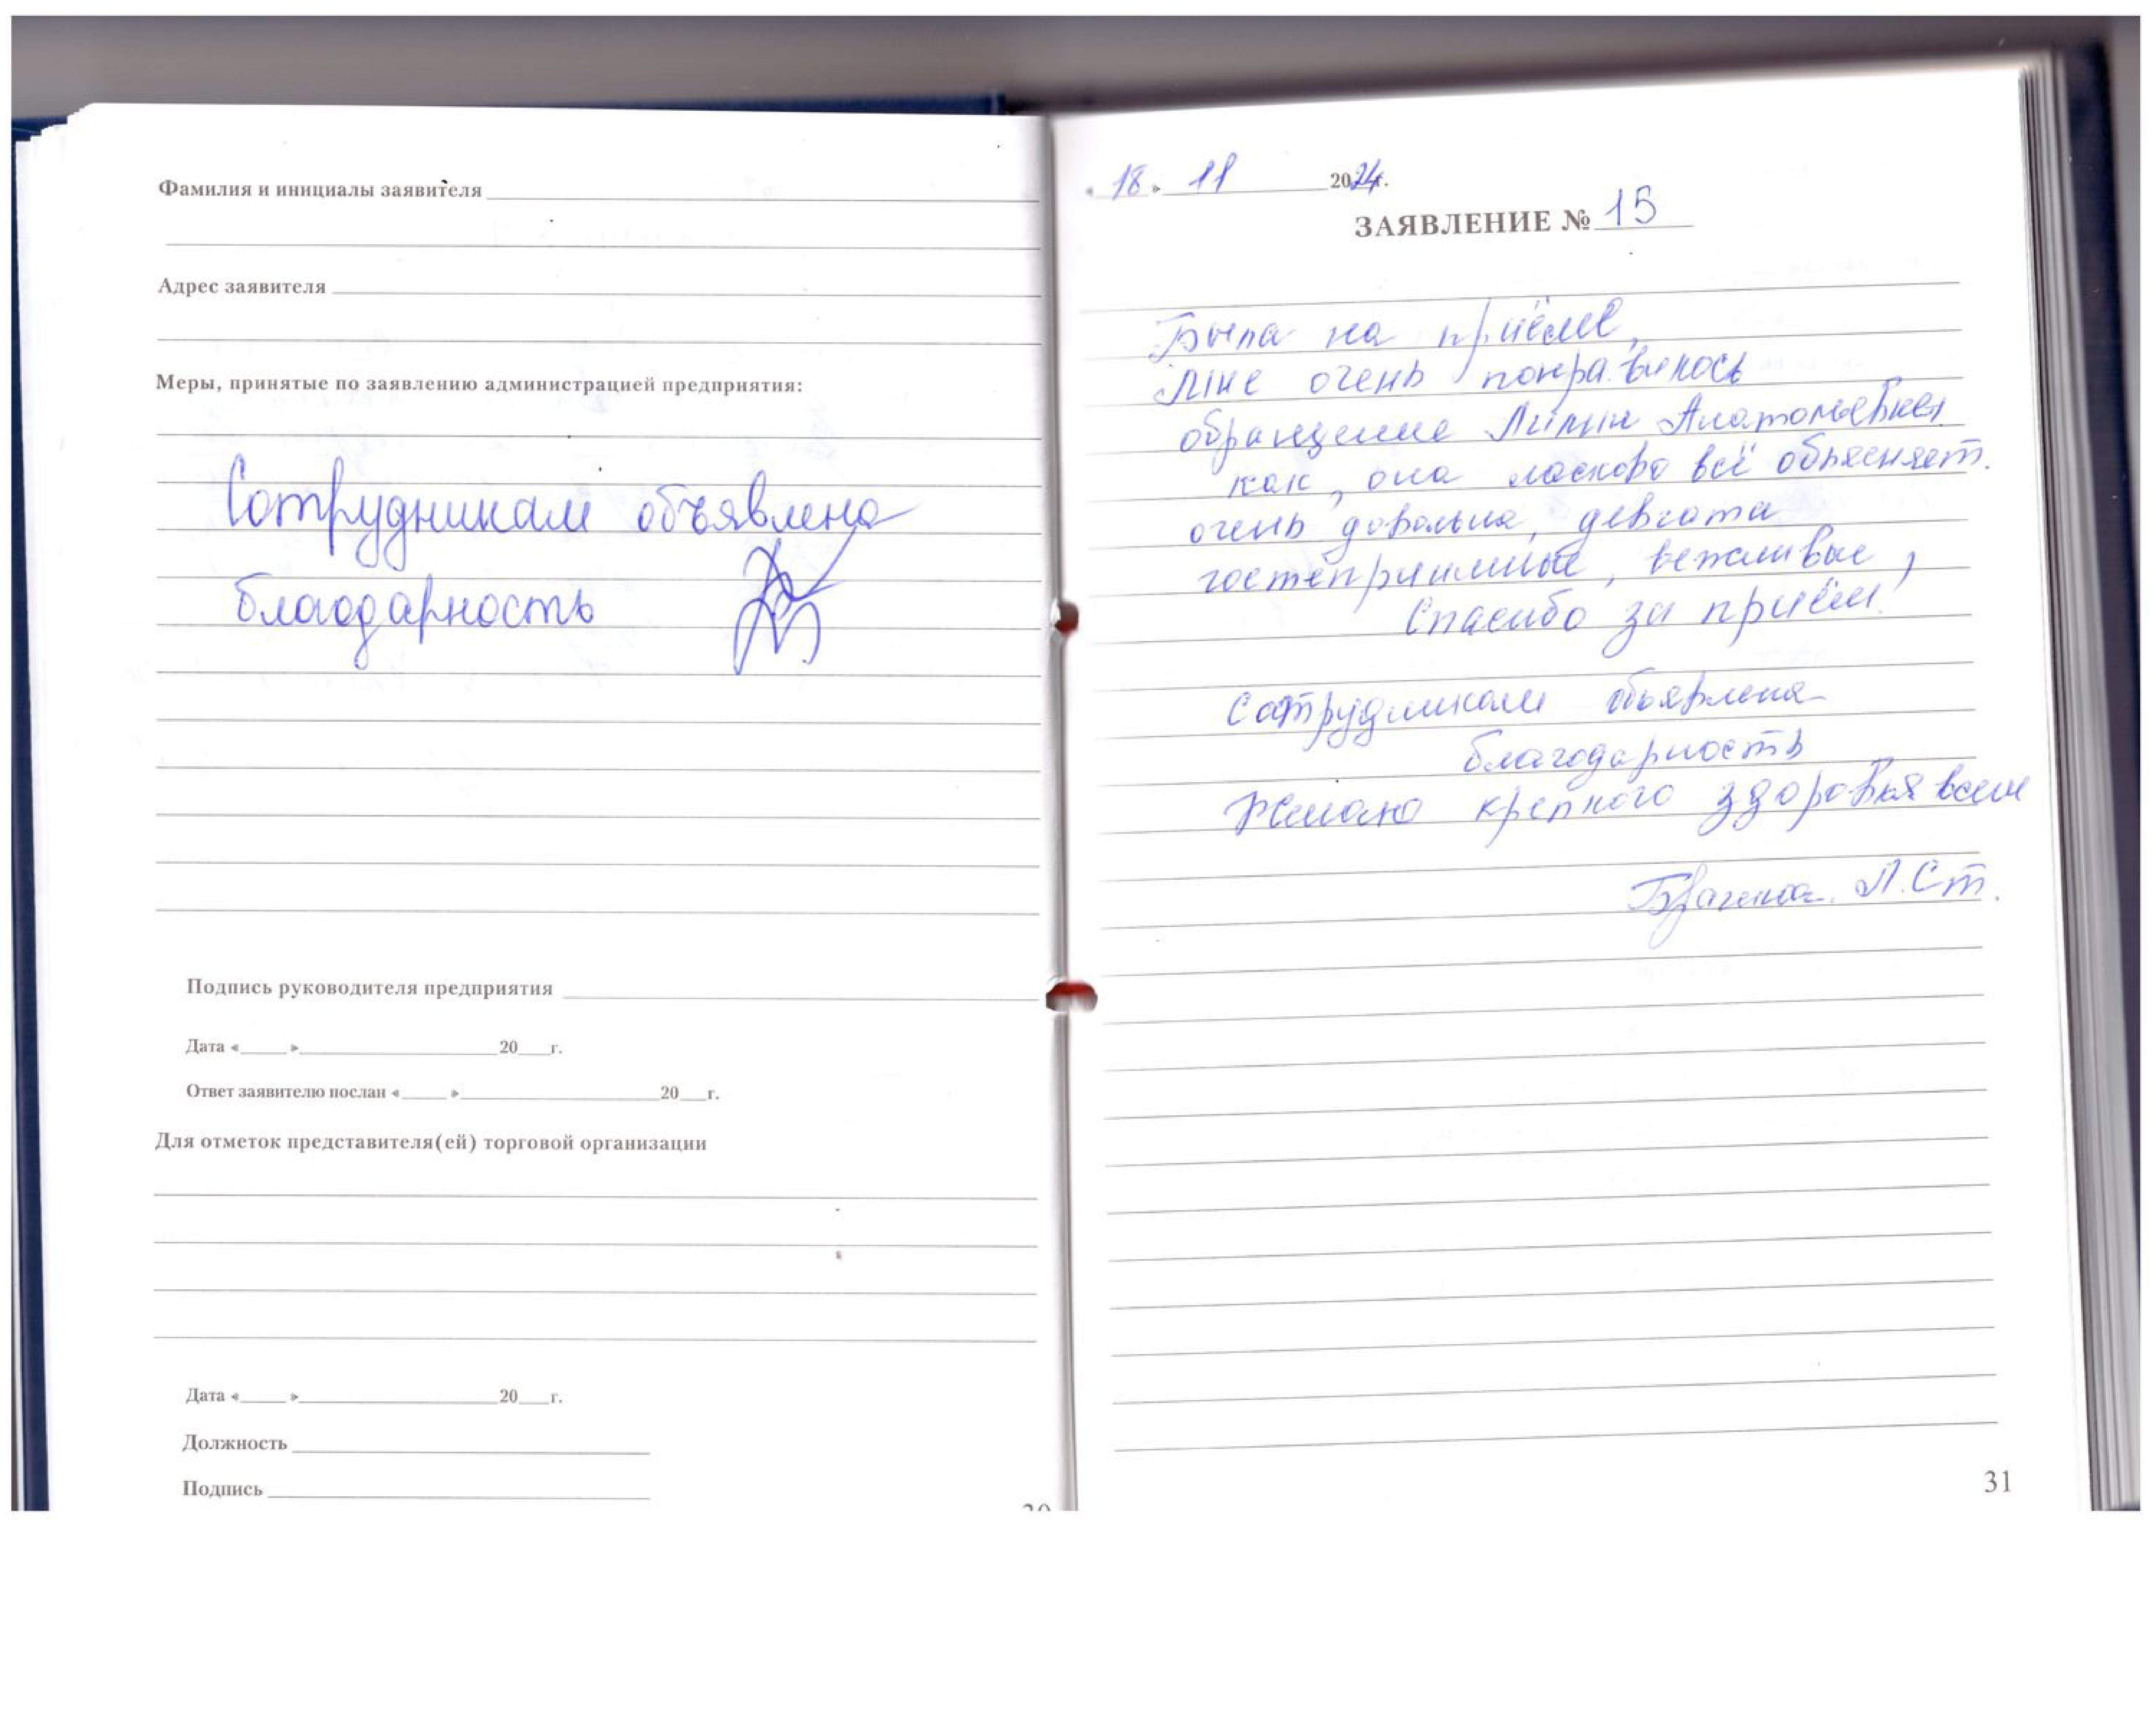 Фамилия и инициалы заявителя
Адрес заявителя
Меры, принятые по заявлению администрацией предприятия:
Сотрудникам объявлена
благодарность
Подпись руководителя предприятия
Дата «____»____________20___г.
Ответ заявителю послан «____»____________20___г.
Для отметок представителя(ей) торговой организации
Дата «____»____________20___г.
Должность
Подпись
« 18 » 11 2024г.
ЗАЯВЛЕНИЕ № 15
Была на приёме,
Мне очень понравилось
обращение Лилии Анатольевной
как, она ласково всё объясняет.
очень довольна, девчата
гостеприимные, вежливые,
Спасибо за приём!
Сотрудникам объявлена
благодарность
Желаю крепкого здоровья всем
Брагина Л.Ст.
31